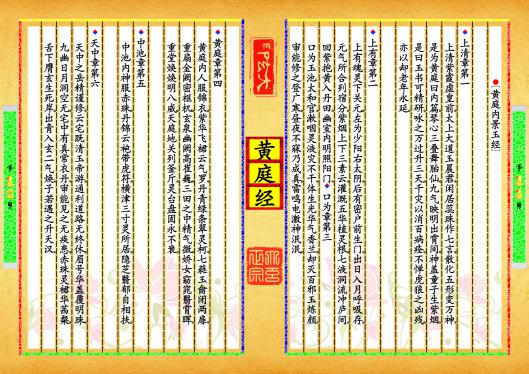 黄庭内景玉经
上清章第一
上清紫霞虚皇前太上大道玉晨君闲居蕊珠作七言散化五形变万神
是为黄庭曰内篇琴心三叠舞胎仙九气映明出霄间神盖童子生紫烟
是曰玉书可精研咏之万过升三天千灾以消百病痊不惮虎狼之凶残
亦以却老年永延
上有章第二
上有魂灵下关元左为少阳右太阴后有密户前生门出日入月呼吸存
元气所合列宿分紫烟上下三素云灌溉五华植灵根七液洞流冲庐间
回紫抱黄入丹田幽室内明照阳门 口为章第三
口为玉池太和官漱咽灵液灾不干体生光华气香兰却灭百邪玉炼颜
审能修之登广寒昼夜不寐乃成真雷鸣电激神泯泯
黄庭经
黄庭章第四
黄庭内人服锦衣紫华飞裙云气罗丹青绿条翠灵柯七蕤玉龠闭两扉
重扇金关密枢机玄泉幽阙高崔巍三田之中精气微娇女窈窕翳霄晖
重堂焕焕明八威天庭地关列斧斤灵台盘固永不衰
中池章第五
中池内神服赤珠丹锦云袍带虎符横津三寸灵所居隐芝翳郁自相扶
天中章第六
天中之岳精谨修云宅既清玉帝游通利道路无终休眉号华盖覆明珠
九幽日月洞空无宅中有真常衣丹审能见之无疾患赤珠灵裙华茜粲
舌下膺玄生死岸出青入玄二气焕子若遇之升天汉